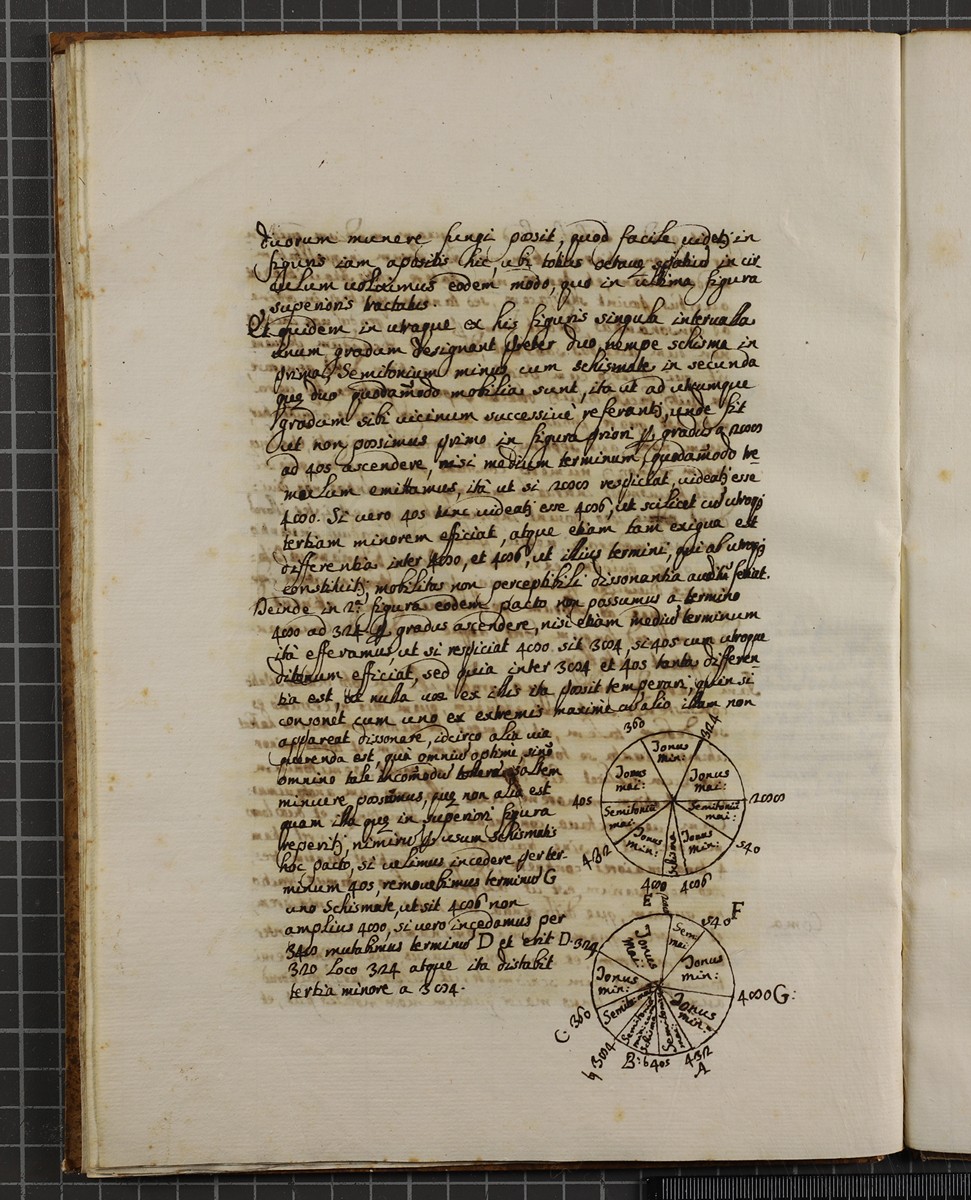 duorum munere fungi possit, quod facile videtʒ in
figuris iam apositis hic, ubi totius octavę spatiũ in cir
culum voluimus eodem modo, quo in ultima figura
superioris tractatus.
Et quidem in utraque ex his figuris singula intervalla
unum gradum designant preter duo nempe schisma in
prima, et Semitonium minus cum schismate in secunda
quę duo quodãmodo mobilia sunt, ita ut ad utrumque
gradum sibi vicinum successive referantʒ, unde fit
ut non possimus primo in figura priori p̱ gradũ a
ad 405 ascendere, nisi medium terminum quodãmodo tre
mulum emittamus, ità ut si respiciat, videatʒ esse
Si vero 405 tunc videatʒ esse ut scilicet cũ utroqʒ
tertiam minorem efficiat, atque etiam tam exigua est
differentia inter et ut illius termini, qui ab utroqʒ
constituitʒ, mobilitas non perceptibili dissonantia auditũ feriat.
Deinde in 2ª figura eodem pacto non possumus a termino
ad 324 p̱ gradus ascendere, nisi etiam mediũ terminum
ità efferamus ut si respiciat sit si 405 cum utroque
ditonum efficiat, sed quia inter et 405 tanta differen
tia est, ut nulla vox ex illis ita possit temperari, quin si
consonet cum uno ex extremis maxime cũ alio illam non
appareat dissonare, idcirco alia via
quærenda est, quà omniũ optimè, sinõ
omnino tale incõmodũ tollere, saltem
minuere possimus, quę non alia est
quam illa quę in superiori figura
reperitʒ, nimirũ p̱ usum schismatis
hoc pacto, si velimus incedere per ter-
minum 405, removebimus terminũ G
uno Schismate, ut sit non
amplius si vero incedamus per
mutabimus terminũ D et erit D.
320 loco 324 atque ita distabit
tertia minore a
360
324
540
432
405
Tonus min:
Tonus mai:
Semitoniũ mai:
Tonus min:
Schisma
Tonus min:
Semitoniũ mai:
Tonus mai:
E
540 F
G:
432 A
B: b 405
C. 360
324
Semi: mai:
Tonus min:
Tonus min:
Schisma
Tonus min:
Tonus mai: